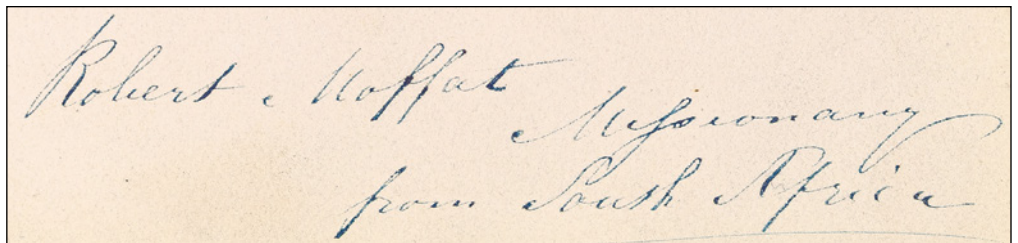 Robert Moffat
Missionary
from South Africa